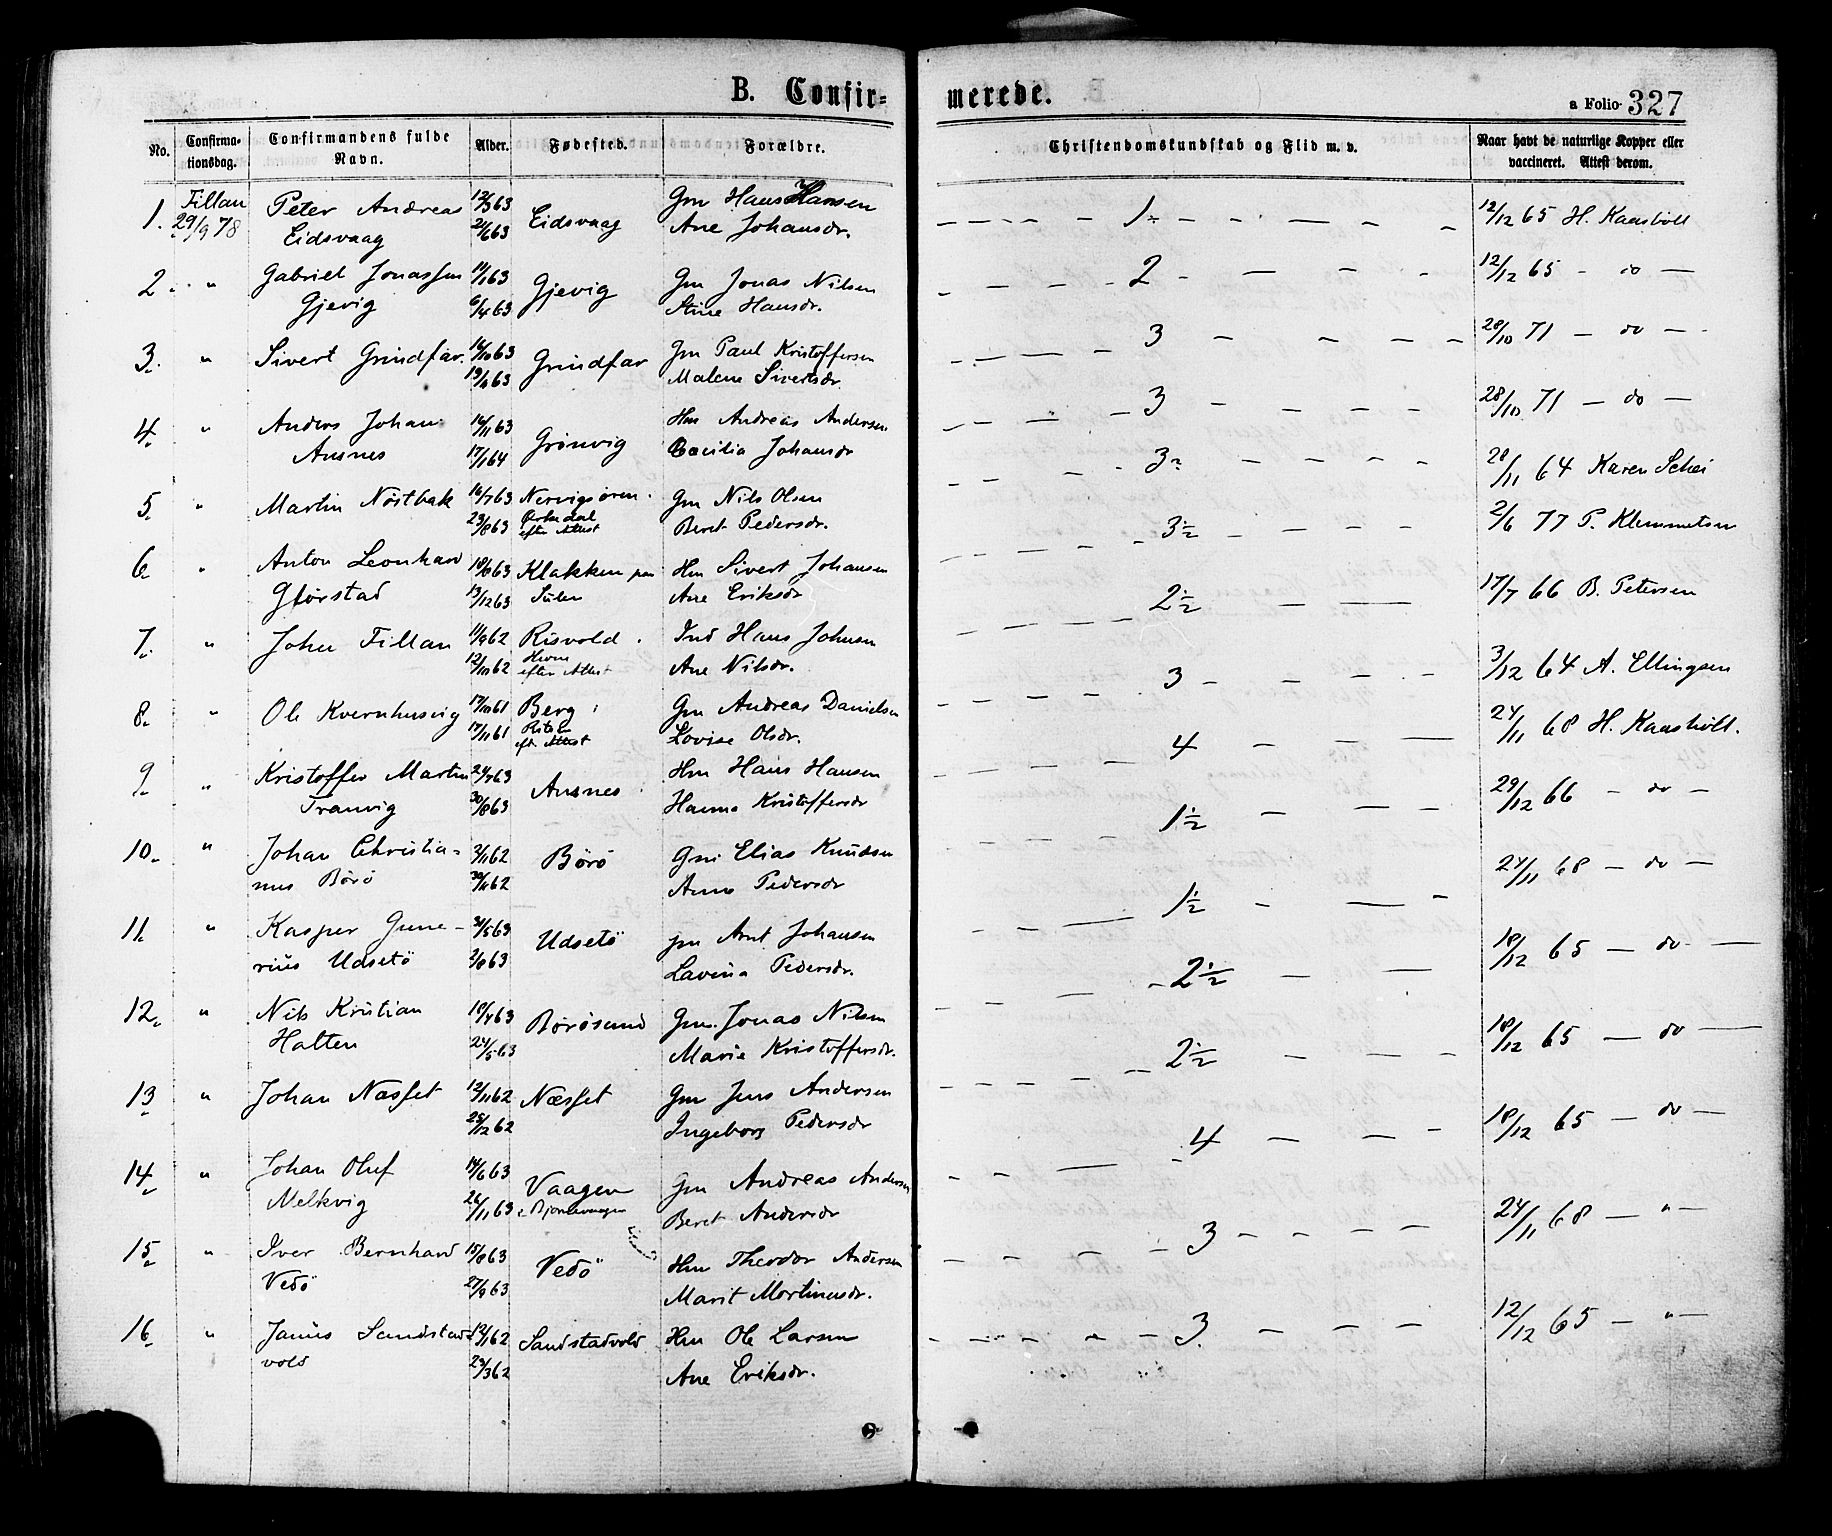 B. Confir=
merede.
a Folio 327
No.
Confirma-
tionsdag.
Confirmandens fulde
Navn.
Alder.
Fødested.
Forældre.
Christendomskundskab og Flid m. v.
Naar havt de naturlige Kopper eller
vaccineret. Attest derom.
1. Fillan 29/9 78 Peter Andreas 12/3 63 Eidsvaag Gm Hans Hansen 1 12/12 65 H. Kaasbøll
Eidsvaag 21/6 63 Ane Johansdr.
2 " Gabriel Jonassen 11/1 63 Gjevig Gm Jonas Nilsen 2 12/12 65 - do -
Gjevig 6/4 63 Stine Hansdr.
3. " Sivert Grindfar. 63 Grindfar Gm Paul Kristoffersen 3 28/10 71 - do -
63 Malene Sivertsdr.
4. " Anders Johan 16/11 63 Grönvig Hm Andreas Andersen 3 28/10 71 - do -
Ansnes 17/1 64 Cecilia Johansdr
5. " Martin Nöstbak 16/7 63 Nervigsören. Gm Nils Olsen 3 28/11 64 Karen Schei
23/8 63 efter Attest Beret Pedersdr.
6. " Anton Leonhard 18/8 63 Klakken paa Hm Sivert Johansen 3½ 2/6 77 P. Klemmetsen
Glörstad 13/12 63 Sulen Ane Eriksdr
7. " Johan Fillan 11/9 62 Risvold. Ind Hans Johnsen 2½ 17/7 66 B. Petersen
12/10 62 Hevne efter Attest Ane Nilsdr.
8. " Ole Kvernhusvig 17/10 61 Berg Gm Andreas Danielsen 3 3/12 64 A. Ellingsen
17/11 61 eft Attest Lovise Olsdr.
9. " Kristoffer Martin 24/7 63 Ansnes Hm Hans Hansen 4 24/11 68 H. Kaasbøll.
Tranvig 30/8 63 Hanna Kristoffersdr
10. " Johan Christia- 2/11 62 Börö Gm Elias Knudsen 1½ 29/12 66 - do -
nus Börö 30/11 62 Anne Pedersdr
11. " Kasper Gune- 31/5 63 Udsetö gm Arnt Johansen 1½ 24/11 68 - do -
rius Udsetö 2/8 63 Lavina Pedersdr.
12. " Nils Kristian 18/4 63 Börösund Gm. Jonas Nilsen 2½ 18/12 65 - do -
Halten 24/5 63 Marie Kristoffersdr.
13 " Johan Næsset 12/11 62 Næsset Gm Jens Andersen 2½ 18/12 65 - do -
25/12 62 Ingeborg Pedersdr
14 " Johan Oluf 14/6 63 Vaagen Gm Andreas Andersen 4 18/12 65 - do -
Melkvig 26/11 63 Beret Andersdr
15. " Iver Bernhard 15/8 63 Vedö Hm Theodor Andersen 3 24/11 68 - " -
Vedö 27/9 63 Marit Martinusdr.
16 " Janus Sandstad- 12/1 62 Sandstadvold Hm Ole Larsen 3. 12/12 65 - " -
vold 23/3 62 Ane Eriksdr.